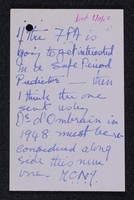 If the FPA is
going to get interested
in the Safe Period
Predictor — then
I think the one
sent us by
Ds d'Ombrain in
1948 must be
considered along
side this new
one